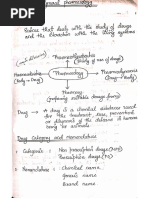 general pharmacology
Science that deals with the study of drugs
and the interaction with the living systems
Pharmacotherapeutics
(Study of use of drug)
Pharmacokinetics
(Body → Drug)
Pharmacology
Pharmacodynamics
(Drug → Body)
Pharmacy
Drug → A drug is a chemical substance used
for the treatment, cure, prevention
or diagnosis of the disease in human
being or animals.
Drug Category and Nomenclature :
Categories : Non prescription drug (OTC)
Prescription drugs (Rx)
Nomenclature : Chemical name
Generic name
Brand name